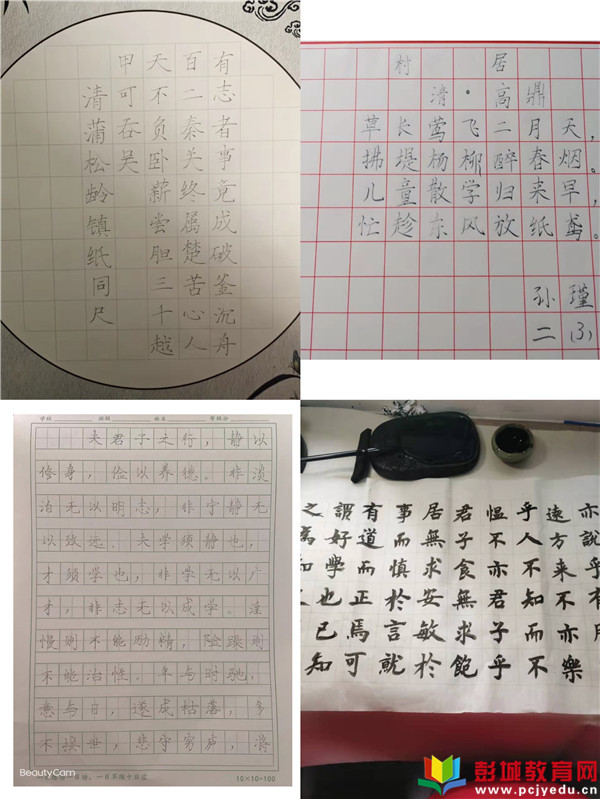 有志者事竟成破釜沉舟
百二秦关终属楚苦心人
天不负卧薪尝胆三千越
甲可吞吴
清蒲松龄镇纸同尺
村居
清·高鼎
草长莺飞二月天，
拂堤杨柳醉春烟。
儿童散学归来早，
忙趁东风放纸鸢。
孙瑾
二(3)
夫君子之行，静以
修身，俭以养德。非淡
泊无以明志，非宁静无
以致远。夫学须静也，
才须学也，非学无以广
才，非志无以成学。淫
慢则不能励精，险躁则
不能治性。年与时驰，
意与日，遂成枯落，多
不接世，悲守穷庐，将
10×10=100
BeautyCam
亦說乎有
遠方来不亦樂
乎人不知而不
愠不亦君子乎
君子食無求飽
居無求安敏於
事而慎於言就
有道而正焉可
謂好學也已
彭城教育网
www.pcjyedu.cn